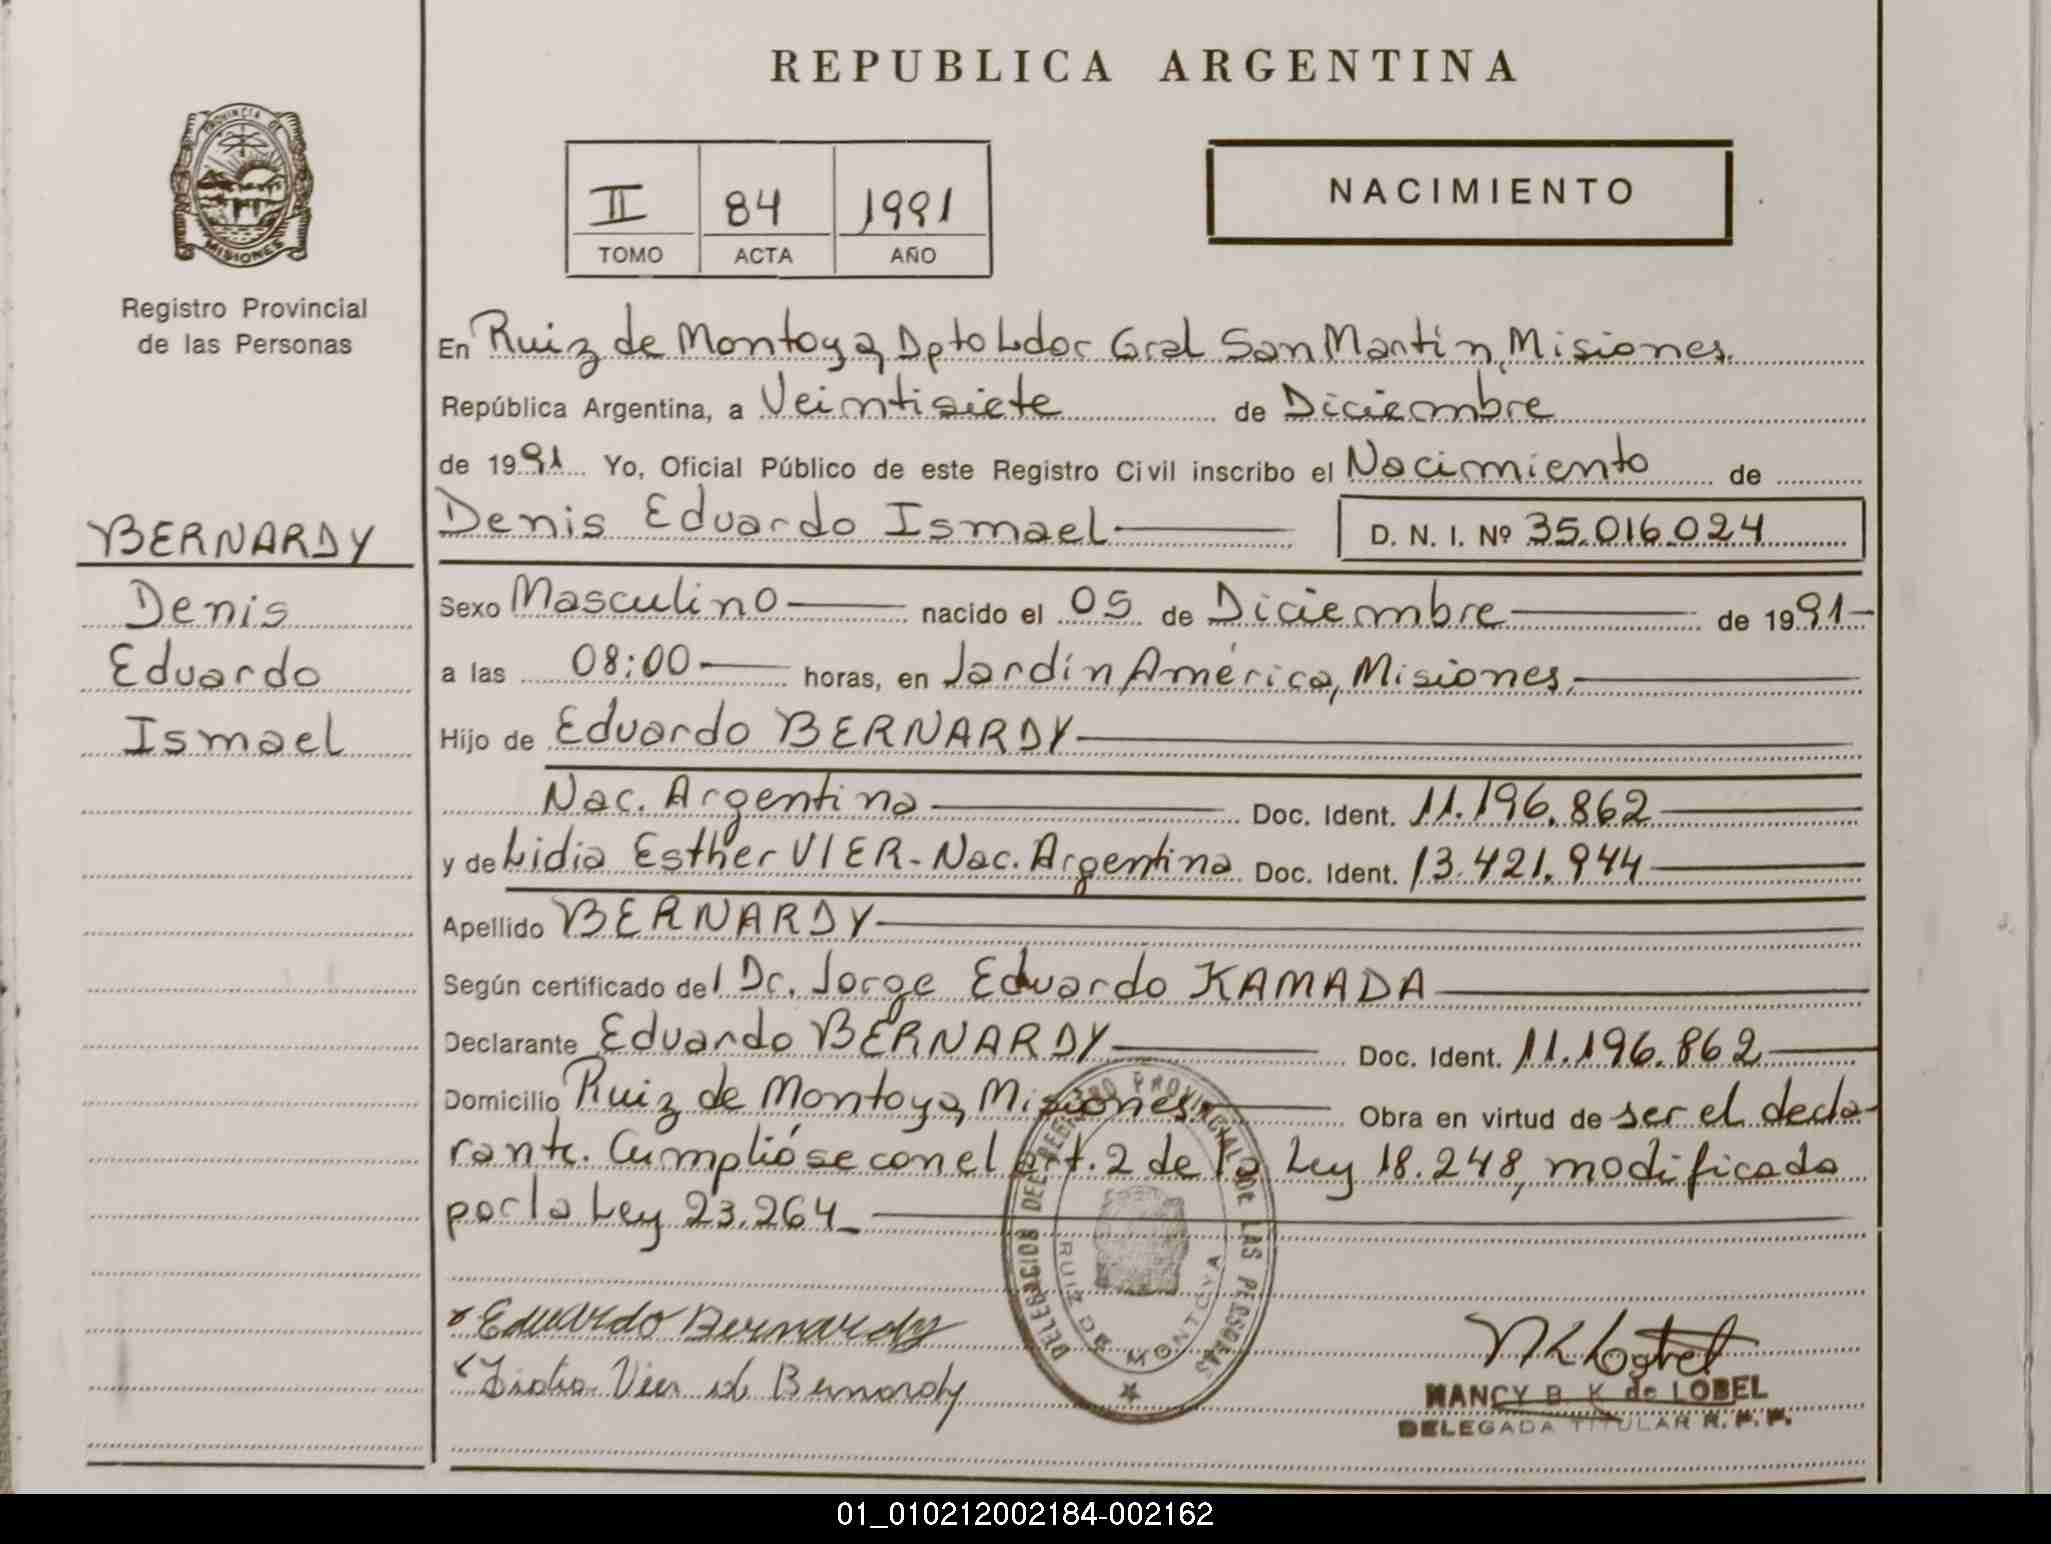 REPUBLICA ARGENTINA
PROVINCIA DE
MISIONES
Registro Provincial
de las Personas
II 84 1991
TOMO ACTA AÑO
NACIMIENTO
BERNARDY
Denis
Eduardo
Ismael
En Ruiz de Montoya, Dpto Ldor Gral San Martín, Misiones.
República Argentina, a Veintisiete de Diciembre
de 1991 Yo, Oficial Público de este Registro Civil inscribo el Nacimiento de
Denis Eduardo Ismael D. N. I. Nº 35.016.024
Sexo Masculino nacido el 05 de Diciembre de 1991
a las 08:00 horas, en Jardín América, Misiones.
Hijo de Eduardo BERNARDY
Nac. Argentina Doc. Ident. 11.196.862
y de Lidia Esther VIER - Nac. Argentina Doc. Ident. 13.421.944
Apellido BERNARDY
Según certificado del Dr. Jorge Eduardo KAMADA
Declarante Eduardo BERNARDY Doc. Ident. 11.196.862
Domicilio Ruiz de Montoya, Misiones. Obra en virtud de ser el decla-
rante. Cumplióse con el Art. 2 de la Ley 18.248, modificada
por la Ley 23.264
DELEGACION DEL REGISTRO PROVINCIAL DE LAS PERSONAS
RUIZ DE MONTOYA
Eduardo Bernardy
Lidia Vier de Bernardy
NANCY B. K. de LOBEL
DELEGADA TITULAR R. P. P.
01_010212002184-002162